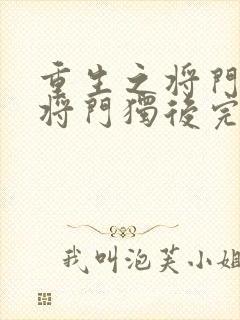 重生之將門
將門獨後完
我叫泡芙小姐